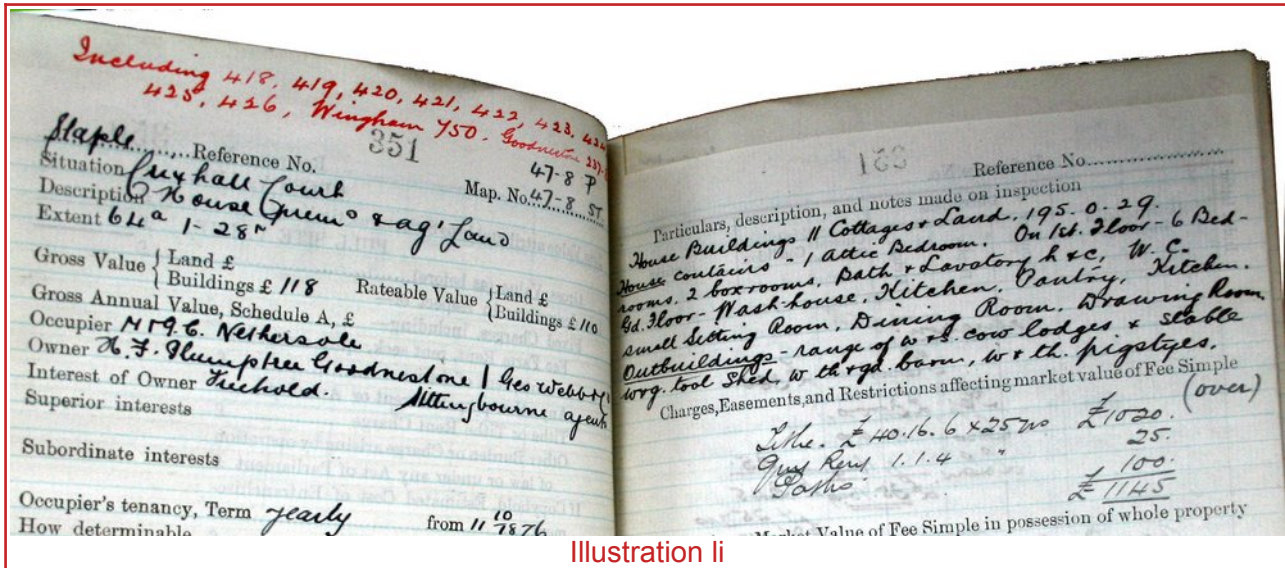 Including 418, 419, 420, 421, 422, 423, 424
425, 426, Wingham 750. Goodnestone
351
Staple Reference No.
47-8
Map. No. 47-8
Situation Court
Description House & agl Land
Extent 64a 1-28
Gross Value { Land £
Buildings £ 118 Rateable Value { Land £
Buildings £ 110
Gross Annual Value, Schedule A, £
Occupier Nethersole
Owner H. F. Plumptree Goodnestone | Geo Webb
Interest of Owner Freehold. Sittingbourne agents
Superior interests
Subordinate interests
Occupier's tenancy, Term yearly from 11 10 1876
How determinable
Reference No.
Particulars, description, and notes made on inspection
House Buildings 11 Cottages & Land. 195. 0. 29.
House contains - 1 attic Bedroom. On 1st. Floor - 6 Bed-
rooms, 2 boxrooms, Bath & Lavatory h & c, W.C.
Gd. Floor - Wash-house, Kitchen, Pantry, Kitchen.
small Sitting Room, Dining Room, Drawing Room
Outbuildings - range of w & s. cow lodges & stable
tool shed, w th & gd. barn, w & th. pigstyes,
Charges, Easements, and Restrictions affecting market value of Fee Simple
(over)
Tithe. £40.16.6 x 25 £1020.
1.1.4 " 25.
Paths 100.
£1145
Market Value of Fee Simple in possession of whole property
Illustration Ii